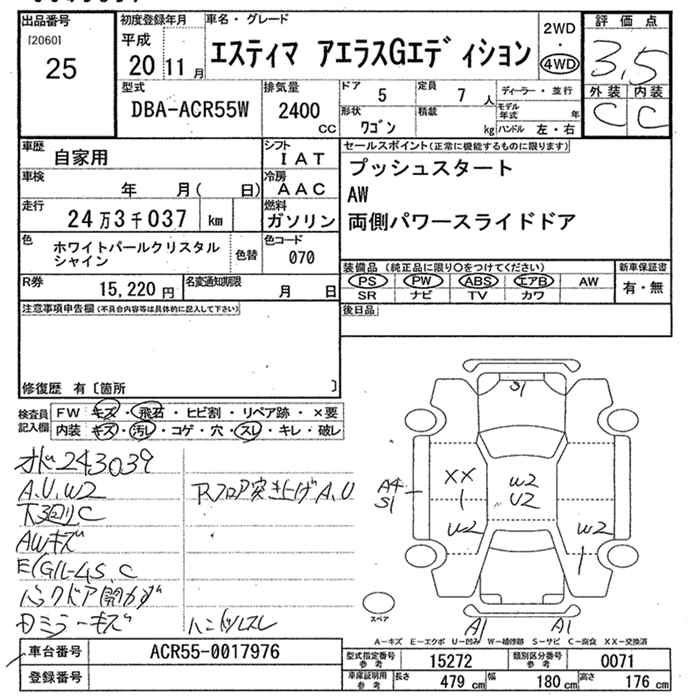 出品番号
[2060]
25
初度登録年月
平成
20 11 月
車名・グレード
エスティマ アエラスGエディション
2WD
・
4WD
評価点
3,5
外装 内装
C C
型式
DBA-ACR55W
排気量
2400
cc
ドア 5
形状
ワゴン
定員 7 人
積載 kg
ディーラー・並行
モデル年式 年
ハンドル 左・右
車歴
自家用
シフト
IAT
車検 年 月( 日)
冷房
AAC
走行
24万3千037 km
燃料
ガソリン
色
ホワイトパールクリスタル
シャイン
色替
色コード
070
R券
15,220 円
名変通知期限
月 日
セールスポイント(正常に機能するものに限ります)
プッシュスタート
AW
両側パワースライドドア
装備品(純正品に限り○をつけてください)
PS PW ABS エアB AW
SR ナビ TV カワ
新車保証書
有・無
後日品
注意事項申告欄(不具合内容等は具体的に記入して下さい)
修復歴 有〔箇所 〕
検査員
記入欄
FW キズ・飛石・ヒビ割・リペア跡・×要
内装 キズ・汚レ・コゲ・穴・スレ・キレ・破レ
オド243039
A.U.W2
下廻りC
AWキズ
バックドア開カズ
ミラーキズ
Rフロア突き上げA.U
ハンドルスレ
S1
A4
S1
XX
1
W2
U2
U2
W2
1
A1
A1
スペア
A-キズ E-エクボ U-凹み W-補修跡 S-サビ C-腐食 XX-交換済
車台番号
ACR55-0017976
登録番号
型式指定番号
参考
15272
類別区分番号
参考
0071
車庫証明用
参考
長さ 479 cm
幅 180 cm
高さ 176 cm